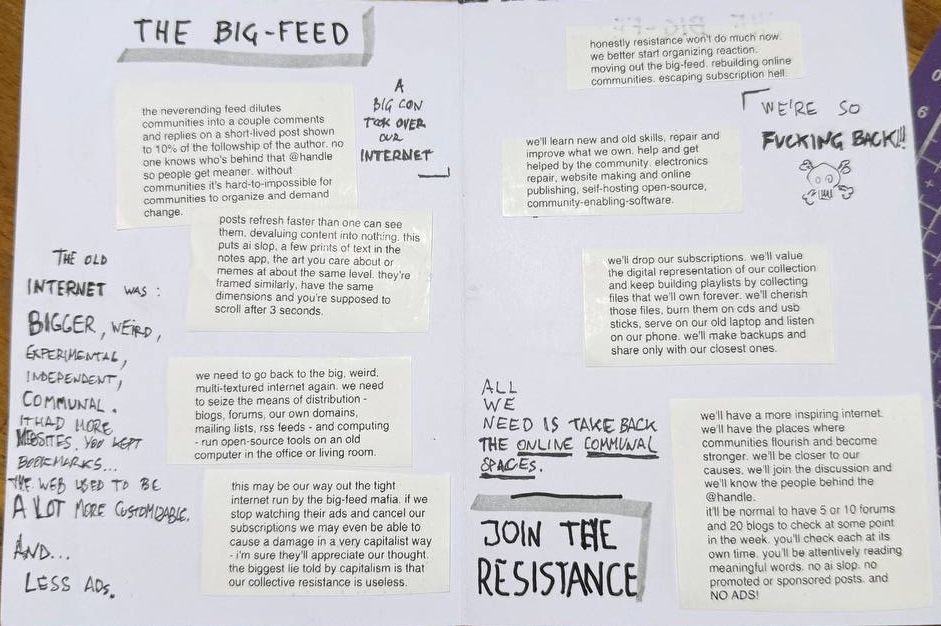 THE BIG-FEED
the neverending feed dilutes
communities into a couple comments
and replies on a short-lived post shown
to 10% of the followship of the author. no
one knows who's behind that @handle
so people get meaner. without
communities it's hard-to-impossible for
communities to organize and demand
change.
A
BIG CON
TOOK OVER
OUR
INTERNET
posts refresh faster than one can see
them, devaluing content into nothing. this
puts ai slop, a few prints of text in the
notes app, the art you care about or
memes at about the same level. they're
framed similarly, have the same
dimensions and you're supposed to
scroll after 3 seconds.
THE OLD
INTERNET WAS:
BIGGER, WEIRD,
EXPERIMENTAL,
INDEPENDENT,
COMMUNAL.
IT HAD MORE
WEBSITES. YOU KEPT
BOOKMARKS...
THE WEB USED TO BE
A LOT MORE CUSTOMIZABLE.
AND...
LESS ADS.
we need to go back to the big, weird,
multi-textured internet again. we need
to seize the means of distribution -
blogs, forums, our own domains,
mailing lists, rss feeds - and computing
- run open-source tools on an old
computer in the office or living room.
this may be our way out the tight
internet run by the big-feed mafia. if we
stop watching their ads and cancel our
subscriptions we may even be able to
cause a damage in a very capitalist way
- i'm sure they'll appreciate our thought.
the biggest lie told by capitalism is that
our collective resistance is useless.
honestly resistance won't do much now.
we better start organizing reaction.
moving out the big-feed. rebuilding online
communities. escaping subscription hell.
WE'RE SO
FUCKING BACK!!
we'll learn new and old skills, repair and
improve what we own. help and get
helped by the community. electronics
repair, website making and online
publishing, self-hosting open-source,
community-enabling-software.
we'll drop our subscriptions. we'll value
the digital representation of our collection
and keep building playlists by collecting
files that we'll own forever. we'll cherish
those files, burn them on cds and usb
sticks, serve on our old laptop and listen
on our phone. we'll make backups and
share only with our closest ones.
ALL
WE
NEED IS TAKE BACK
THE ONLINE COMMUNAL
SPACES.
JOIN THE
RESISTANCE
we'll have a more inspiring internet.
we'll have the places where
communities flourish and become
stronger. we'll be closer to our
causes. we'll join the discussion and
we'll know the people behind the
@handle.
it'll be normal to have 5 or 10 forums
and 20 blogs to check at some point
in the week. you'll check each at its
own time. you'll be attentively reading
meaningful words. no ai slop. no
promoted or sponsored posts. and
NO ADS!
0
6